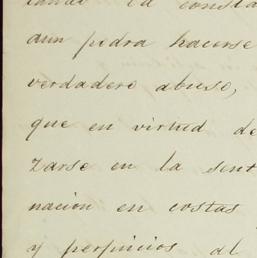 tando la consta
aun podra hacerse
verdadero abuso,
que en virtud de
zarse en la sent
nacion en costas
y perjuicios al